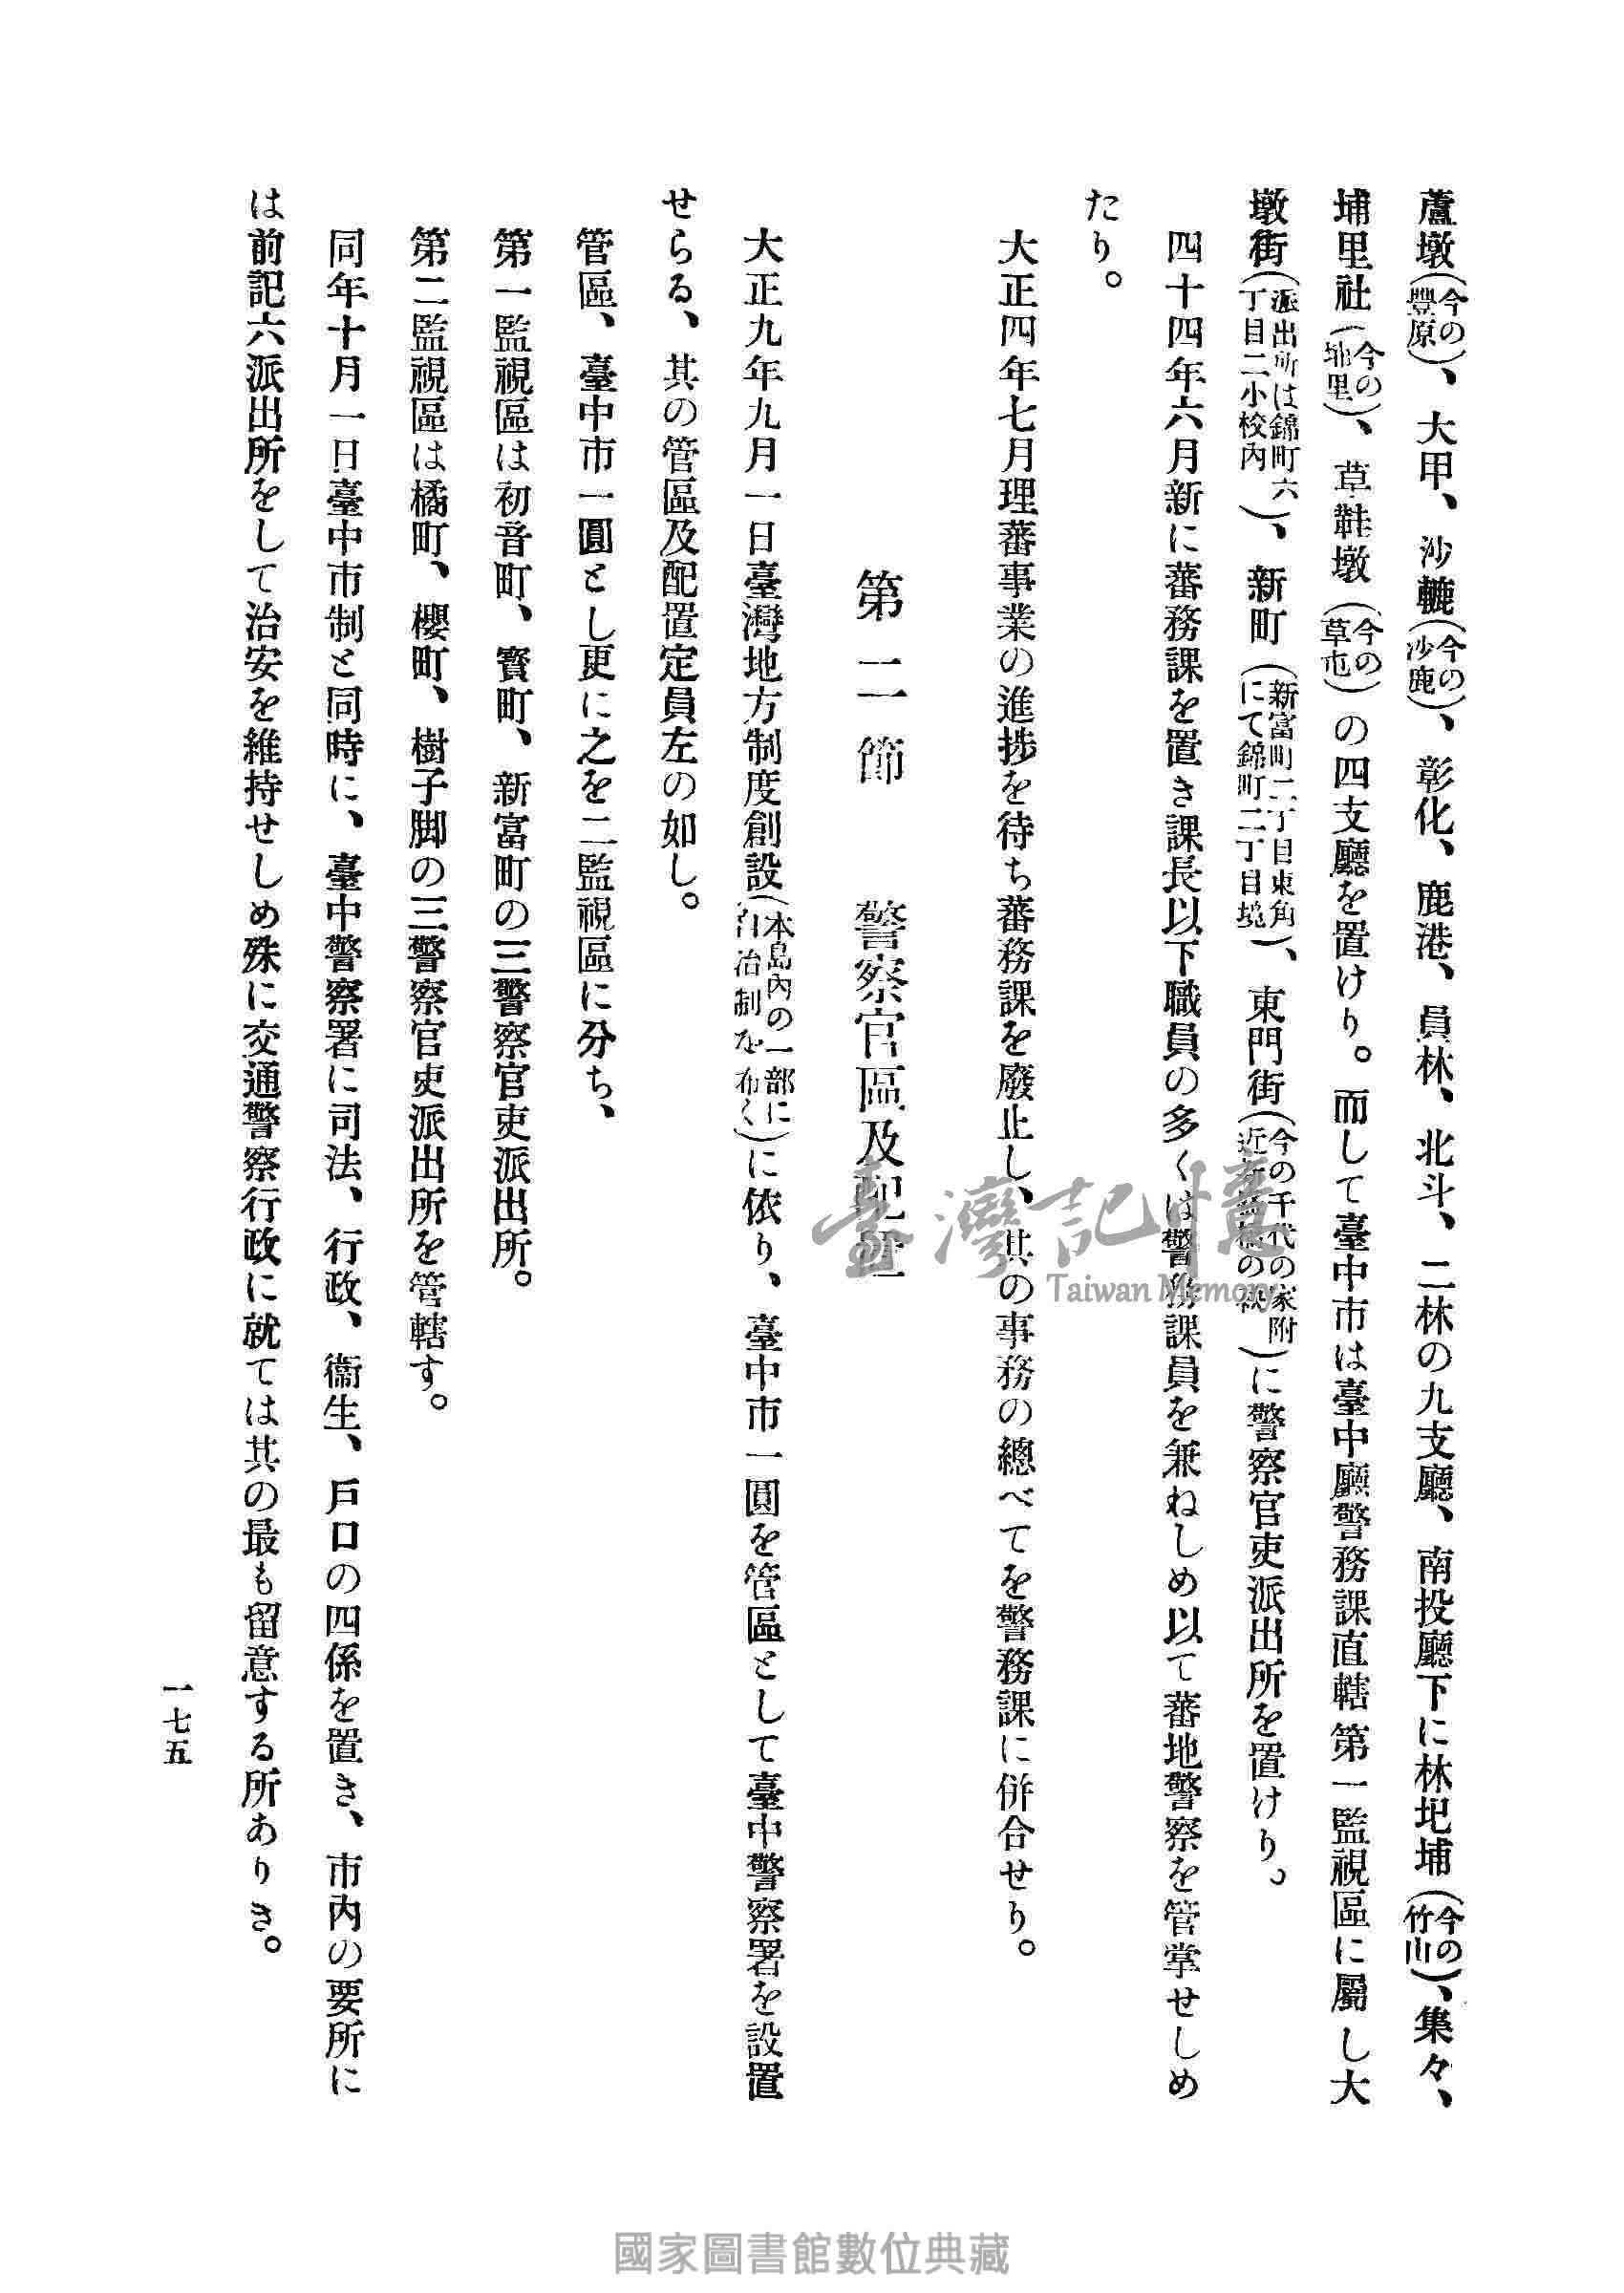 蘆墩(今の豐原)、大甲、沙轆(今の沙鹿)、彰化、鹿港、員林、北斗、二林の九支廳、南投廳下に林圯埔(今の竹山)、集々、
埔里社(今の埔里)、草鞋墩(今の草屯)の四支廳を置けり。而して臺中市は臺中廳警務課直轄第一監視區に屬し大
墩街(派出所は錦町六丁目二小校內)、新町(新富町二丁目東角にて錦町二丁目境)、東門街(今の千代の家附近)に警察官吏派出所を置けり。
四十四年六月新に蕃務課を置き課長以下職員の多くは警務課員を兼ねしめ以て蕃地警察を管掌せしめ
たり。
大正四年七月理蕃事業の進捗を待ち蕃務課を廢止し、其の事務の總べてを警務課に併合せり。
第二節　警察官區及配置
大正九年九月一日臺灣地方制度創設(本島內の一部に自治制を布く)に依り、臺中市一圓を管區として臺中警察署を設置
せらる、其の管區及配置定員左の如し。
管區、臺中市一圓とし更に之を二監視區に分ち、
第一監視區は初音町、寶町、新富町の三警察官吏派出所。
第二監視區は橘町、櫻町、樹子脚の三警察官吏派出所を管轄す。
同年十月一日臺中市制と同時に、臺中警察署に司法、行政、衞生、戶口の四係を置き、市內の要所に
は前記六派出所をして治安を維持せしめ殊に交通警察行政に就ては其の最も留意する所ありき。
一七五
臺灣記憶
Taiwan Memory
國家圖書館數位典藏